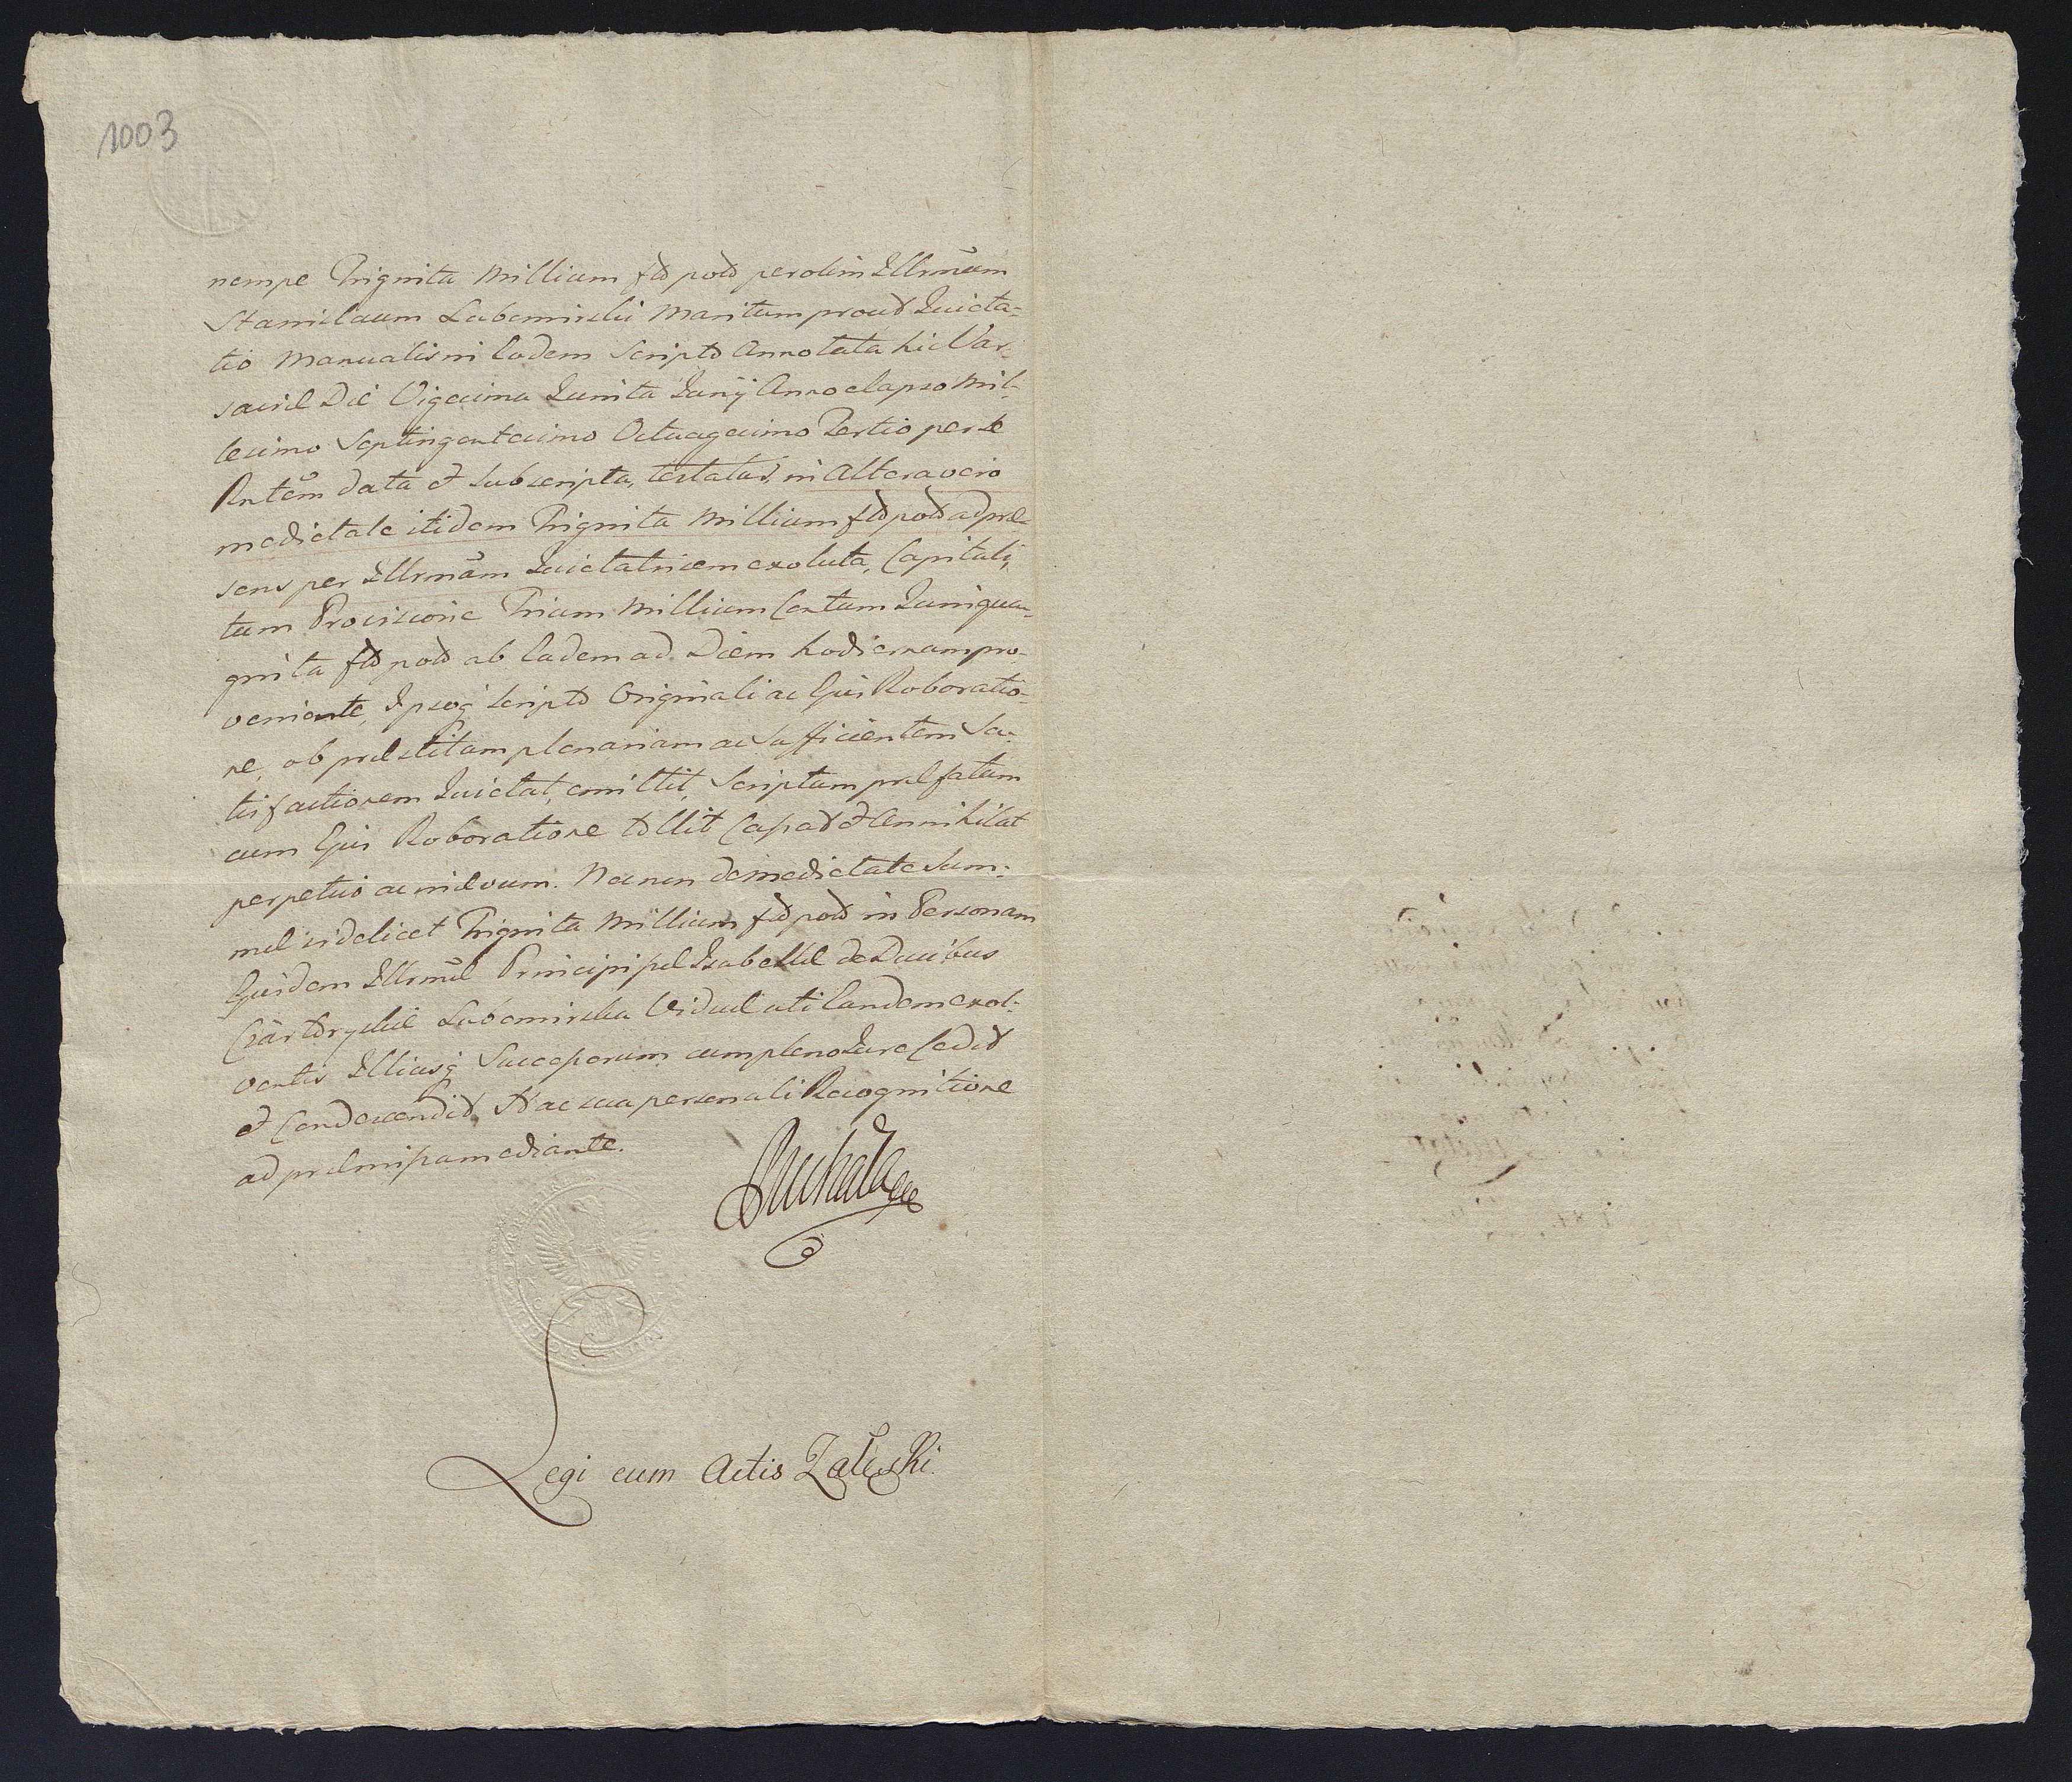 1003
nempe Triginta Millium fld pold per olim Illrmũm
Stanislaum Lubomirski Maritum prout Quieta-
tio Manualis in Eodem Scripto Annotata hic Var-
saviæ Die Vigesima Quinta Junÿ Anno elapso Mil-
lesimo Septingentesimo Octuagesimo Tertio per se
Rntẽm data et Subscripta, testatur, in Altera vero
medietate itidem Triginta Millium fld pold ad præ-
sens per Illrmãm Quietatricem exoluta, Capitali,
tum Provisione Trium Millium Centum Quinqua-
ginta fld pold ab Eadem ad Diem hodiernam pro-
veniente, Ipsoq Scripto Originali ac Ejus Roboratio-
ne, ob præstitam plenariam ac Sufficientem Sa-
tisfactionem Quietat, omittit, Scriptum præfatum
cum Ejus Roboratione tollit Cassat et Annihilat
perpetuo ac in ævum. Necnon de medietate Sum-
mæ videlicet Triginta Millium fld pold in Personam
Ejusdem Illrmæ Principissæ Isabellæ de Ducibus
Czartoryskie Lubomirska Viduæ uti Eandem exol-
ventis Illiusq Successorum cum pleno Jure Cedit
et Condescendit Hac sua personali Recognitione
ad præmissa mediante.
Legi cum Actis Zaleski